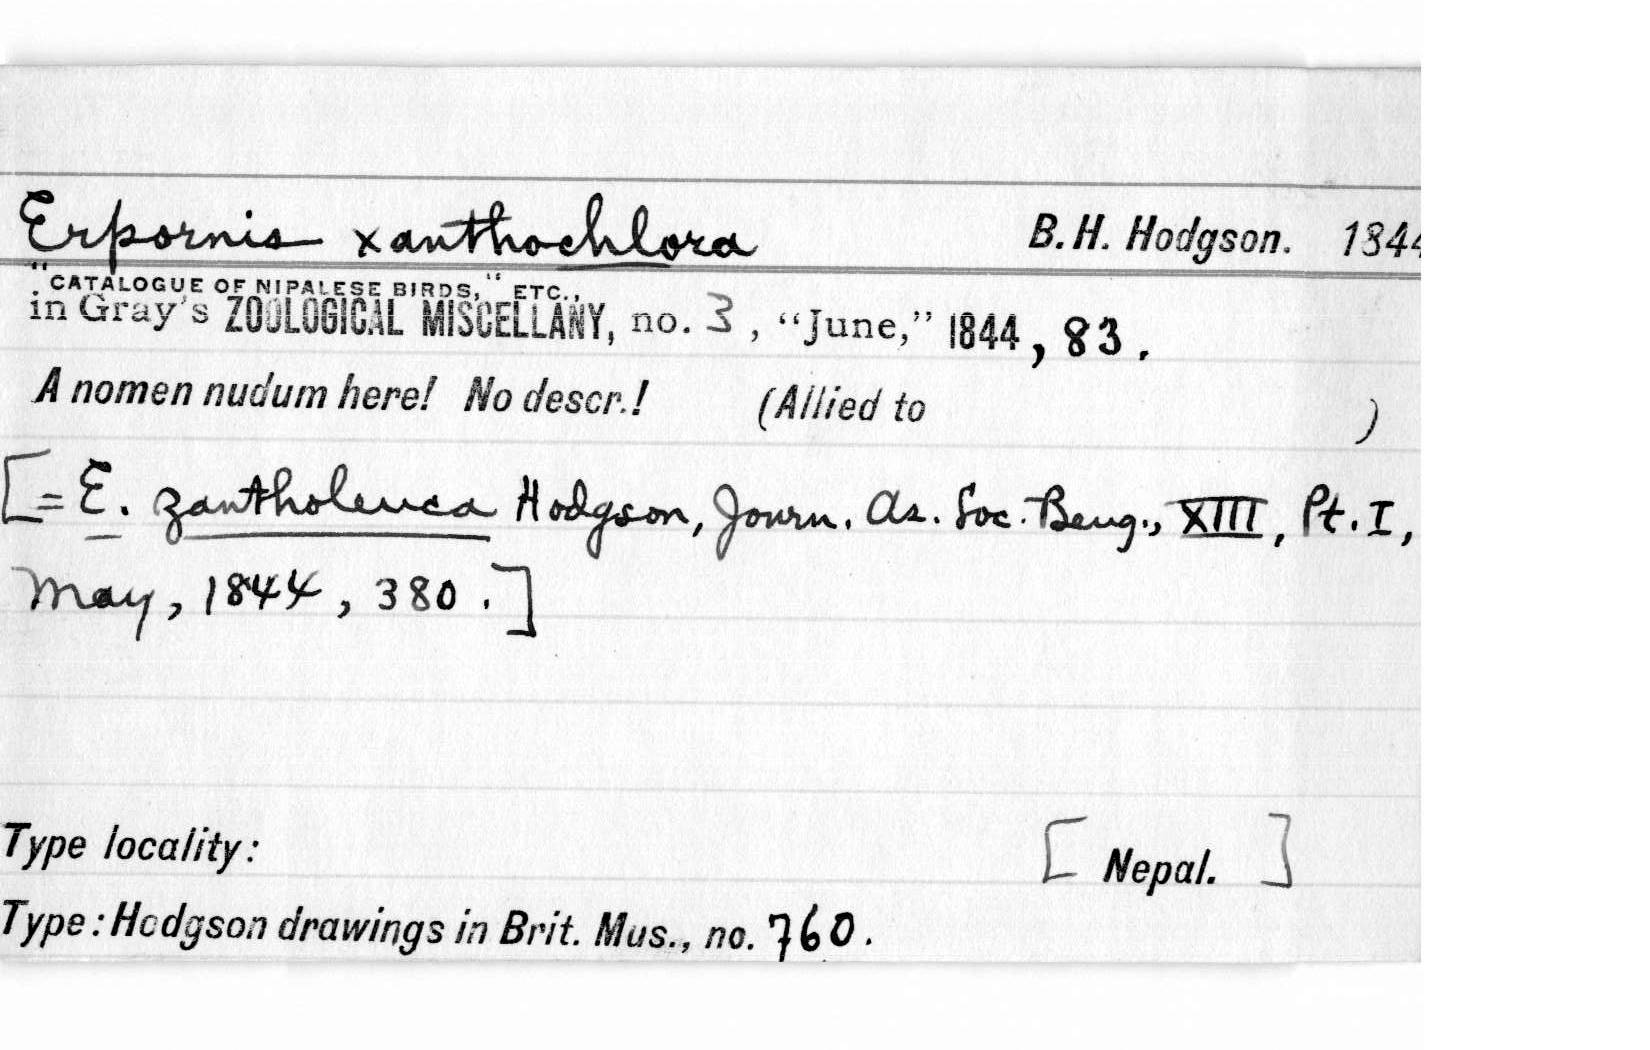 Erpornis xanthochlora B. H. Hodgson. 1844
"CATALOGUE OF NIPALESE BIRDS," ETC.,
in Gray's ZOOLOGICAL MISCELLANY, no. 3, "June," 1844, 83.
A nomen nudum here! No descr.! (Allied to )
[= E. zantholeuca Hodgson, Journ. As. Soc. Beng., XIII, Pt. I,
May, 1844, 380.]
Type locality: [Nepal.]
Type: Hodgson drawings in Brit. Mus., no. 760.